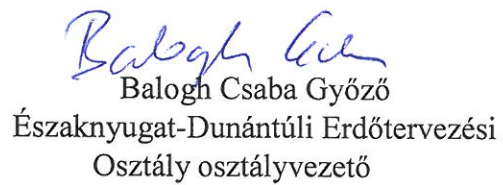 Balogh Csaba
Balogh Csaba Győző
Északnyugat-Dunántúli Erdőtervezési
Osztály osztályvezető